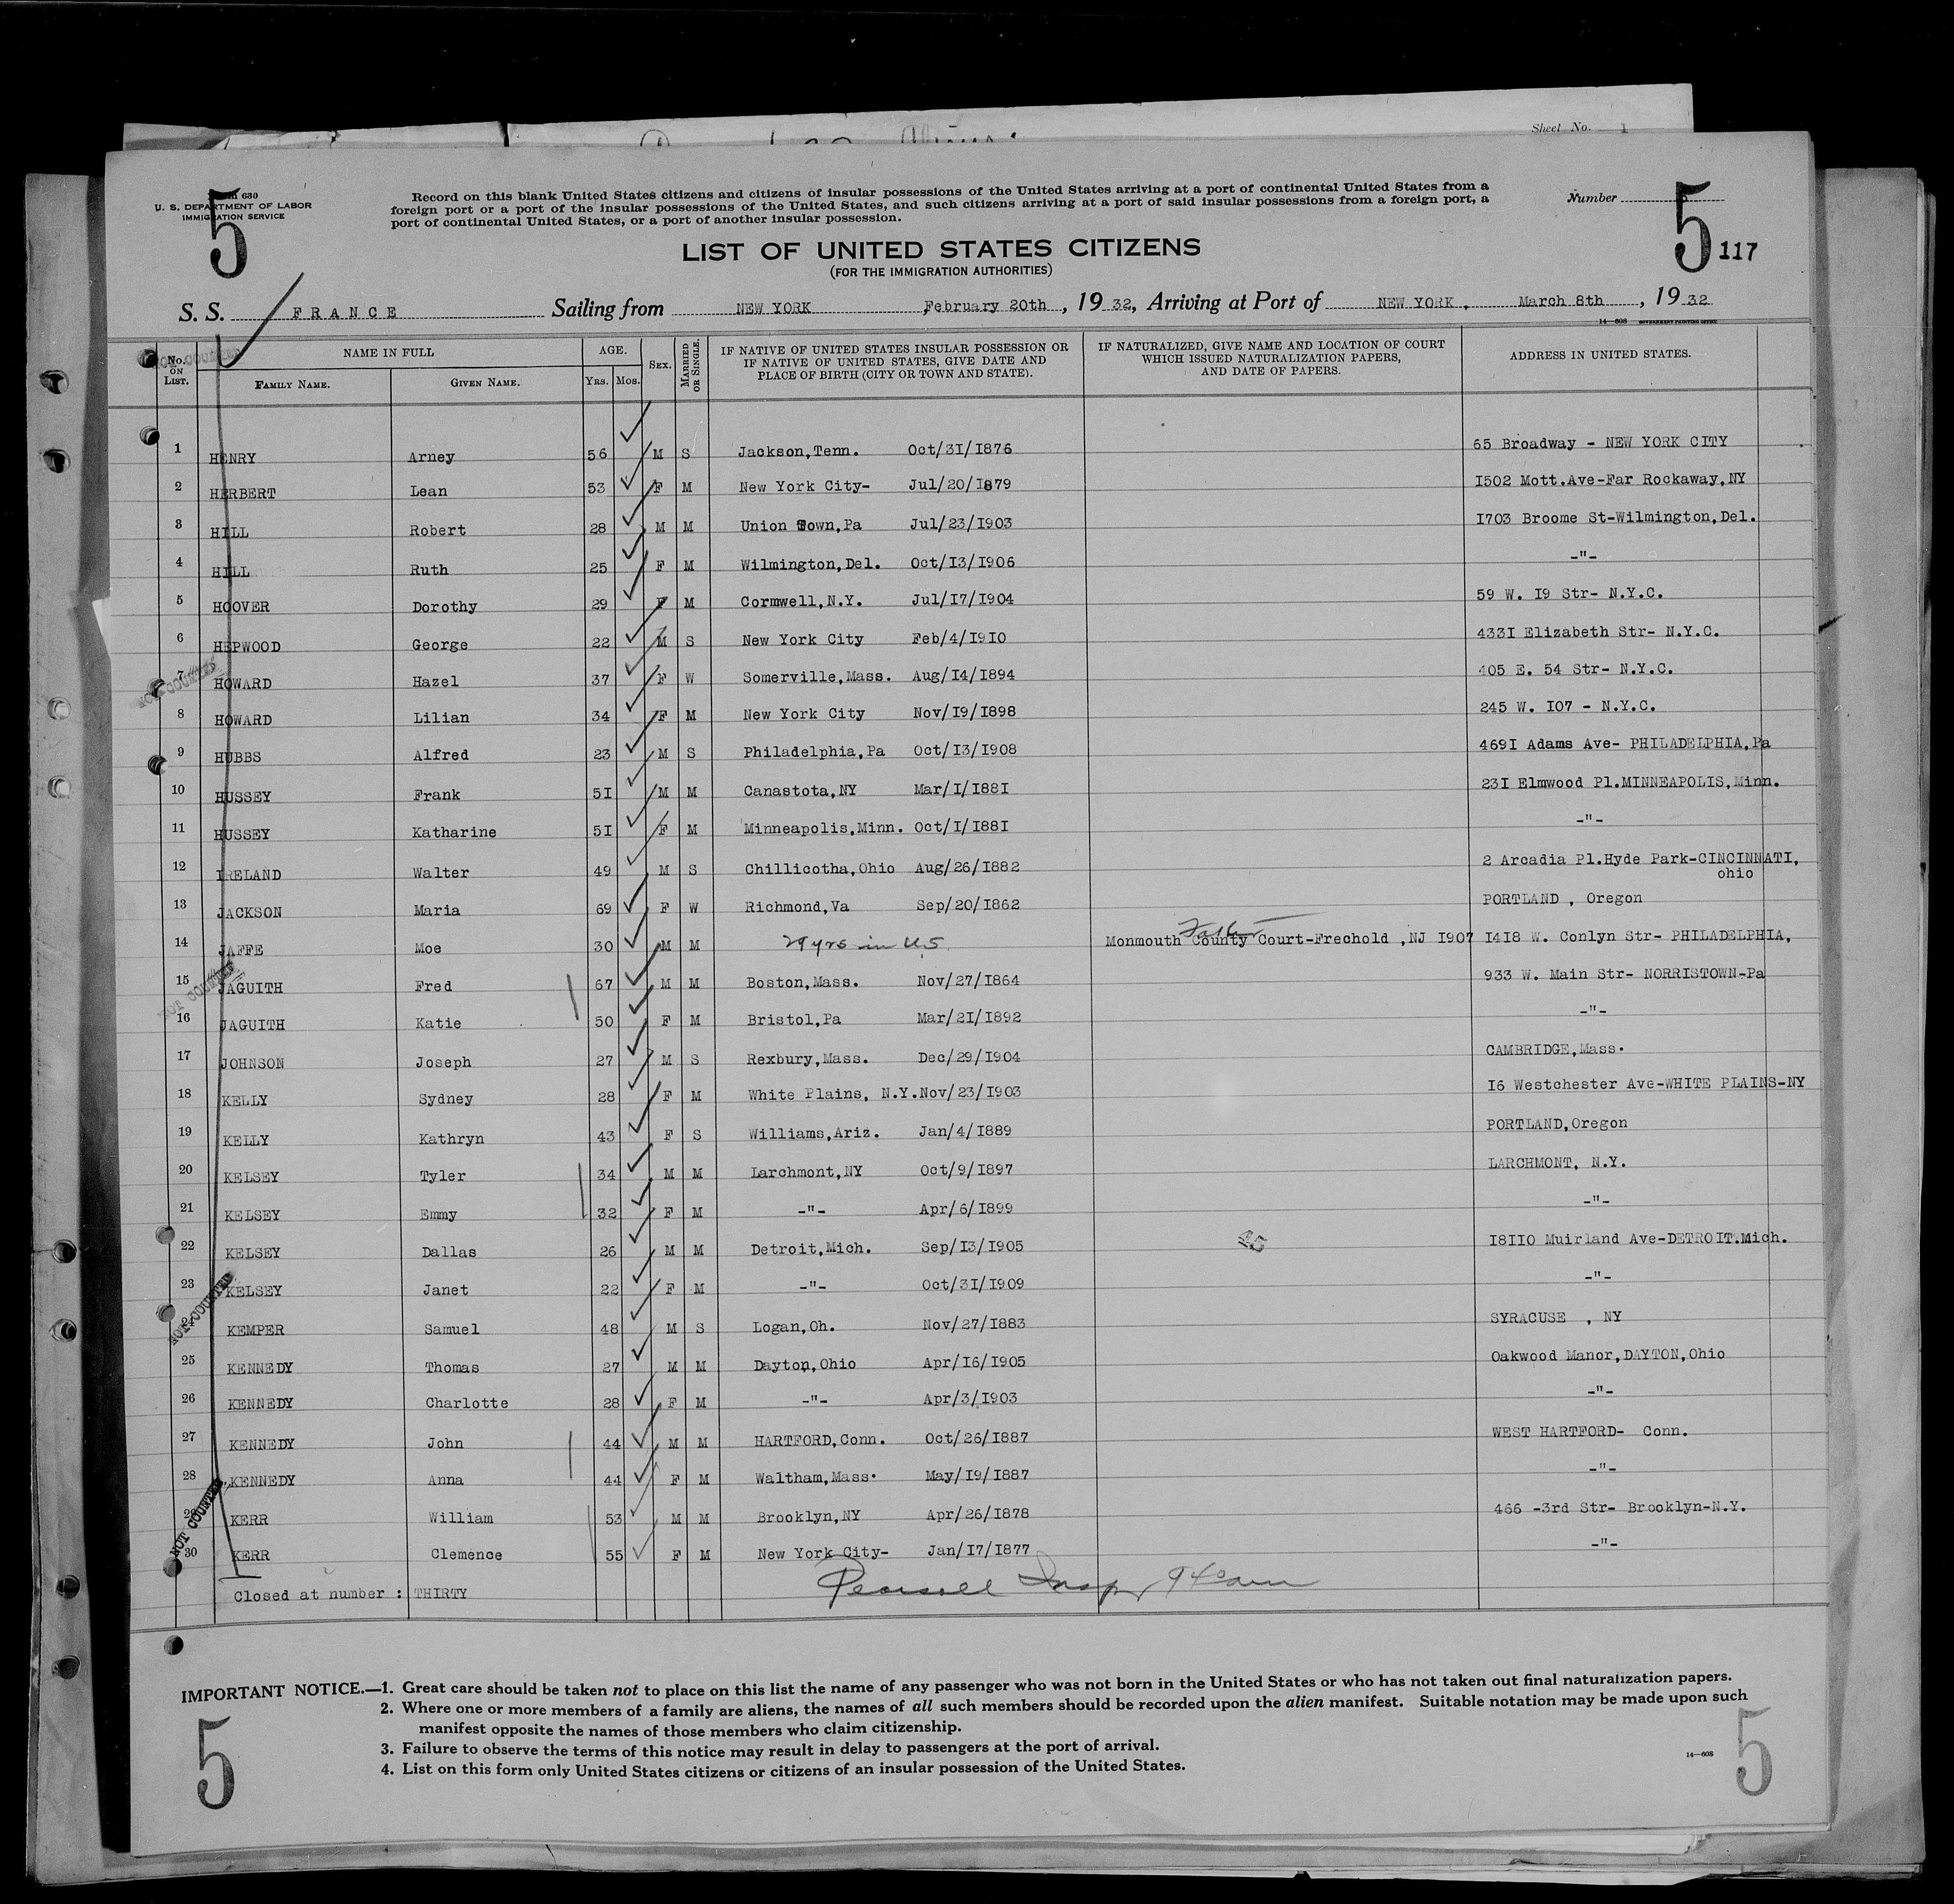 Sheet No. 1
630
U. S. DEPARTMENT OF LABOR
IMMIGRATION SERVICE
5
Record on this blank United States citizens and citizens of insular possessions of the United States arriving at a port of continental United States from a
foreign port or a port of the insular possessions of the United States, and such citizens arriving at a port of said insular possessions from a foreign port, a
port of continental United States, or a port of another insular possession.
Number
5
117
LIST OF UNITED STATES CITIZENS
(FOR THE IMMIGRATION AUTHORITIES)
S. S. FRANCE Sailing from NEW YORK, February 20th, 1932, Arriving at Port of NEW YORK, March 8th, 1932
14—608 GOVERNMENT PRINTING OFFICE
No. ON LIST. NAME IN FULL FAMILY NAME. GIVEN NAME. AGE. YRS. MOS. SEX. MARRIED OR SINGLE. IF NATIVE OF UNITED STATES INSULAR POSSESSION OR IF NATIVE OF UNITED STATES, GIVE DATE AND PLACE OF BIRTH (CITY OR TOWN AND STATE). IF NATURALIZED, GIVE NAME AND LOCATION OF COURT WHICH ISSUED NATURALIZATION PAPERS, AND DATE OF PAPERS. ADDRESS IN UNITED STATES.
NOT COUNTED
1 HENRY Arney 56 M S Jackson,Tenn. Oct/31/1876 65 Broadway - NEW YORK CITY
2 HERBERT Lean 53 F M New York City- Jul/20/1879 1502 Mott.Ave-Far Rockaway,NY
3 HILL Robert 28 M M Union Town,Pa Jul/23/1903 1703 Broome St-Wilmington,Del.
4 HILL Ruth 25 F M Wilmington,Del. Oct/13/1906 -"-
5 HOOVER Dorothy 29 F M Cormwell,N.Y. Jul/17/1904 59 W. 19 Str- N.Y.C.
6 HEPWOOD George 22 M S New York City Feb/4/1910 4331 Elizabeth Str- N.Y.C.
NOT COUNTED
7 HOWARD Hazel 37 F W Somerville,Mass. Aug/14/1894 405 E. 54 Str- N.Y.C.
8 HOWARD Lilian 34 F M New York City Nov/19/1898 245 W. 107 - N.Y.C.
9 HUBBS Alfred 23 M S Philadelphia,Pa Oct/13/1908 4691 Adams Ave- PHILADELPHIA,Pa
10 HUSSEY Frank 51 M M Canastota,NY Mar/1/1881 231 Elmwood Pl.MINNEAPOLIS,Minn.
11 HUSSEY Katharine 51 F M Minneapolis,Minn. Oct/1/1881 -"-
12 IRELAND Walter 49 M S Chillicotha,Ohio Aug/26/1882 2 Arcadia Pl.Hyde Park-CINCINNATI,
ohio
13 JACKSON Maria 69 F W Richmond,Va Sep/20/1862 PORTLAND , Oregon
Father
14 JAFFE Moe 30 M M 29 yrs in U.S. Monmouth County Court-Frechold ,NJ 1907 1418 W. Conlyn Str- PHILADELPHIA,
NOT COUNTED
15 JAGUITH Fred 67 M M Boston,Mass. Nov/27/1864 933 W. Main Str- NORRISTOWN-Pa
16 JAGUITH Katie 50 F M Bristol,Pa Mar/21/1892 -"-
17 JOHNSON Joseph 27 M S Rexbury,Mass. Dec/29/1904 CAMBRIDGE,Mass.
18 KELLY Sydney 28 F M White Plains, N.Y. Nov/23/1903 16 Westchester Ave-WHITE PLAINS-NY
19 KELLY Kathryn 43 F S Williams,Ariz. Jan/4/1889 PORTLAND,Oregon
20 KELSEY Tyler 34 M M Larchmont,NY Oct/9/1897 LARCHMONT, N.Y.
21 KELSEY Emmy 32 F M -"- Apr/6/1899 -"-
22 KELSEY Dallas 26 M M Detroit,Mich. Sep/13/1905 18110 Muirland Ave-DETROIT.Mich.
23 KELSEY Janet 22 F M -"- Oct/31/1909 -"-
NOT COUNTED
24 KEMPER Samuel 48 M S Logan,Oh. Nov/27/1883 SYRACUSE , NY
25 KENNEDY Thomas 27 M M Dayton,Ohio Apr/16/1905 Oakwood Manor,DAYTON,Ohio
26 KENNEDY Charlotte 28 F M -"- Apr/3/1903 -"-
27 KENNEDY John 44 M M HARTFORD,Conn. Oct/26/1887 WEST HARTFORD- Conn.
28 KENNEDY Anna 44 F M Waltham,Mass. May/19/1887 -"-
NOT COUNTED
29 KERR William 53 M M Brooklyn,NY Apr/26/1878 466 -3rd Str- Brooklyn-N.Y.
30 KERR Clemence 55 F M New York City- Jan/17/1877 -"-
Closed at number : THIRTY
IMPORTANT NOTICE.—1. Great care should be taken not to place on this list the name of any passenger who was not born in the United States or who has not taken out final naturalization papers.
2. Where one or more members of a family are aliens, the names of all such members should be recorded upon the alien manifest. Suitable notation may be made upon such
manifest opposite the names of those members who claim citizenship.
3. Failure to observe the terms of this notice may result in delay to passengers at the port of arrival.
4. List on this form only United States citizens or citizens of an insular possession of the United States.
14—608
5
5